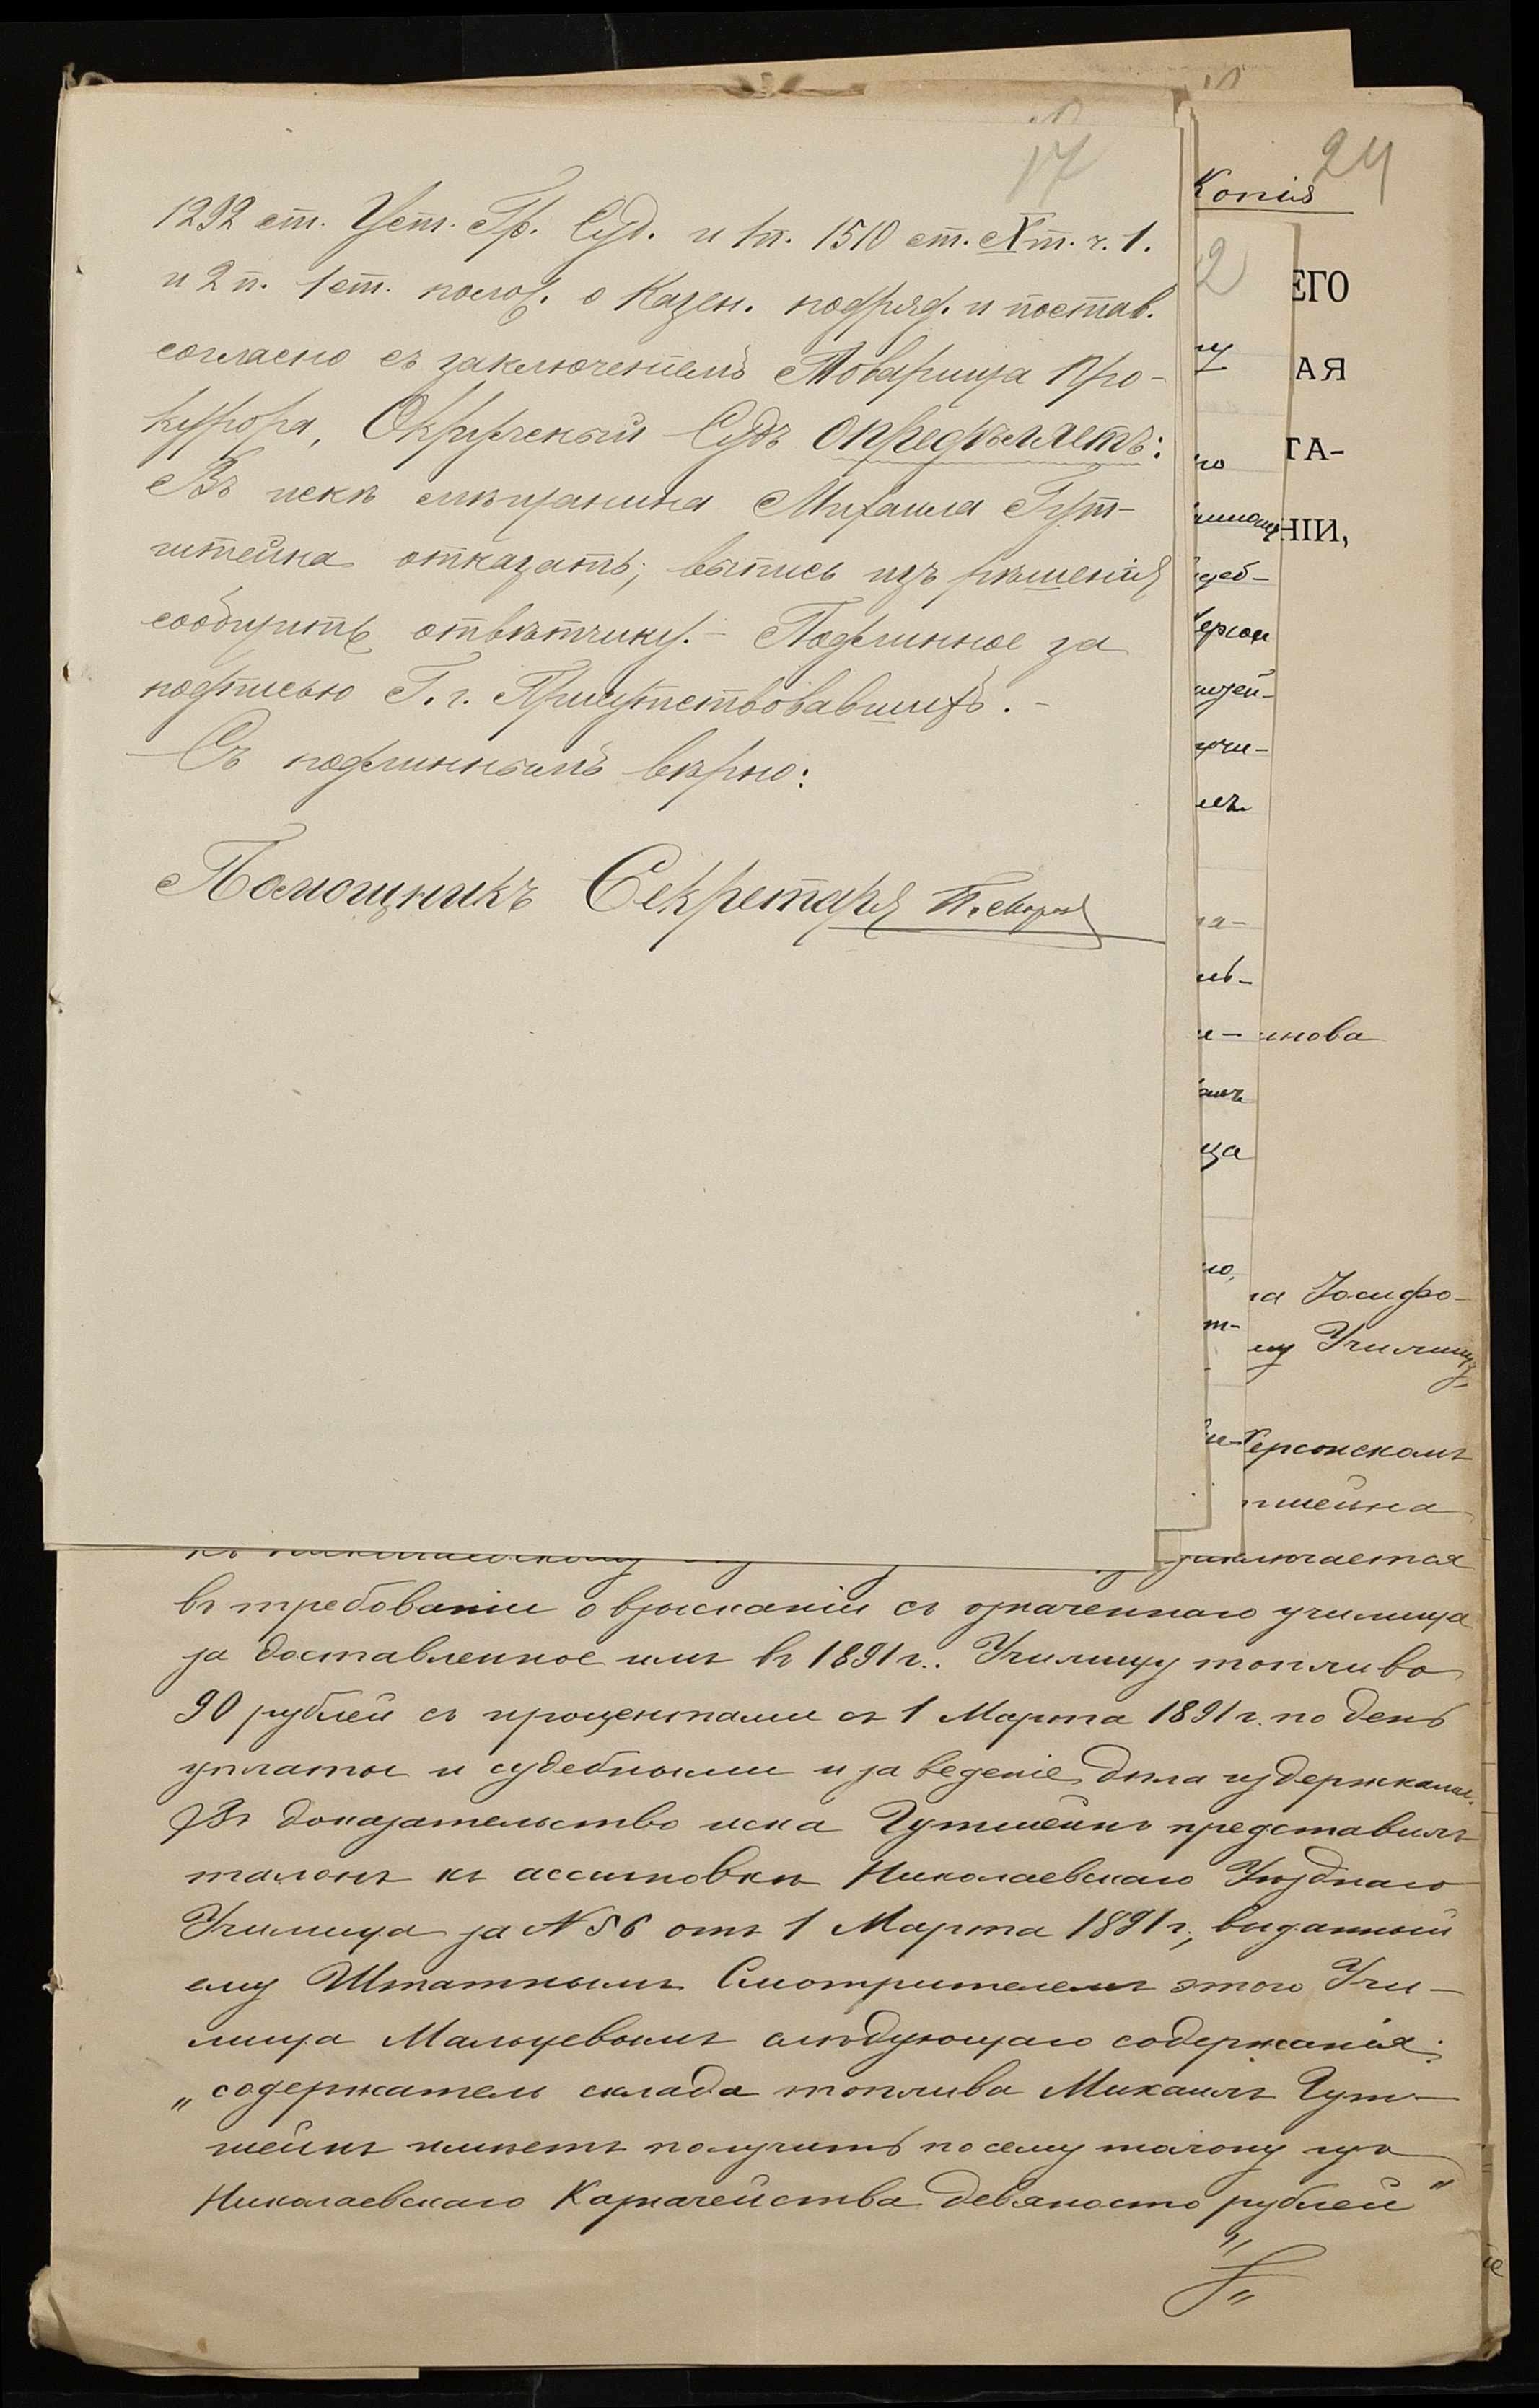 17
1292 ст. Уст. Гр. Суд. и 1п. 1510 ст. X т. ч. 1.
и 2 п. 1 ст. полож. о Казен. подряд. и постав.
согласно съ заключеніемъ Товарища Про-
курора, Окружный Судъ опредѣляетъ:
Въ искѣ мѣщанина Михаила Гут-
штейна отказать; выпись изъ рѣшенія
сообщить отвѣтчику. – Подлинное за
подписью Г. г. Присутствовавшихъ. –
Съ подлиннымъ вѣрно:
Помощникъ Секретаря
24
Копія
2
ЕГО
АЯ
ТА-
НІИ,
инова
на Іосифо-
му Училищу,
Херсонскомъ
тшейна
заключается
въ требованіи о взысканіи съ означеннаго училища
за доставленное имъ въ 1891 г.. Училищу топливо
90 рублей съ процентами съ 1 Марта 1891 г. по день
уплаты и судебными и за веденіе дѣла издержками.
Въ доказательство иска Гутшейнъ представилъ
талонъ къ ассигновкѣ Николаевскаго Уѣзднаго
Училища за N 56 отъ 1 Марта 1891 г., выданный
ему Штатнымъ Смотрителемъ этого Учи-
лища Мальцевымъ слѣдующаго содержанія:
„содержатель склада топлива Михаилъ Гут-
шейнъ имѣетъ получить по сему талону изъ
Николаевскаго Казначейства девяносто рублей"